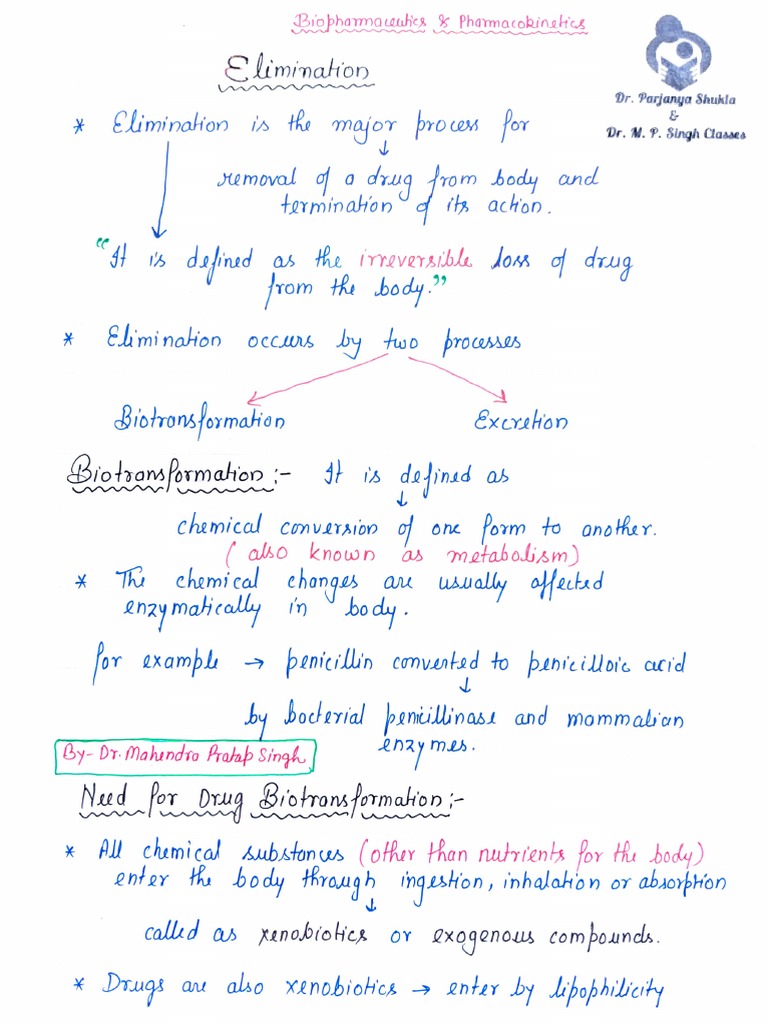 Biopharmaceutics & Pharmacokinetics
Elimination
Dr. Parjanya Shukla
&
Dr. M. P. Singh Classes
* Elimination is the major process for
↓
removal of a drug from body and
termination of its action.
"It is defined as the irreversible loss of drug
from the body."
* Elimination occurs by two processes
Biotransformation Excretion
Biotransformation :- It is defined as
↓
chemical conversion of one form to another.
(also known as metabolism)
* The chemical changes are usually affected
enzymatically in body.
for example → penicillin converted to penicilloic acid
↓
by bacterial penicillinase and mammalian
enzymes.
By- Dr. Mahendra Pratap Singh
Need for Drug Biotransformation :-
* All chemical substances (other than nutrients for the body)
enter the body through ingestion, inhalation or absorption
↓
called as xenobiotics or exogenous compounds.
* Drugs are also xenobiotics → enter by lipophilicity